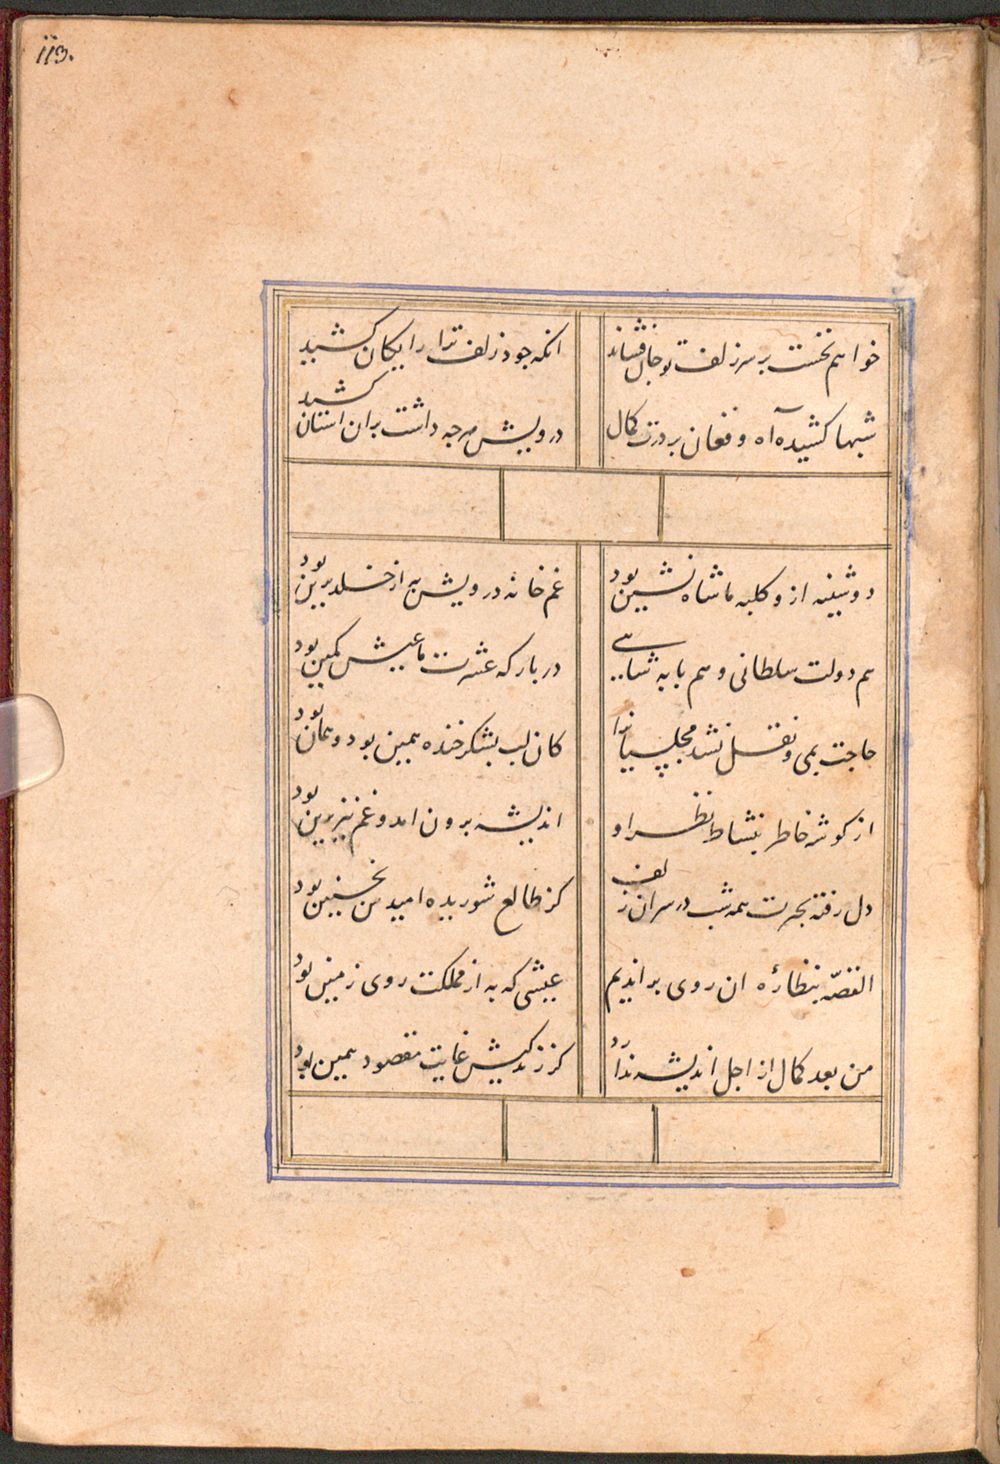 113.
خواهم نخست بر سر زلف تو جان فشاند
انکه جو دزلف ترا رایکان کشید
شبها کشیده آه و فغان بر درت کمال
درویش هرجه داشت بران استان کشید
دوشینه ازو کلبه ما شاه نشین بود
غم خانه درویش به از خلد برین بود
هم دولت سلطانی و هم بایه شاهی
در بارکه عشرت ما عیش کمین بود
حاجت بمی و نقل نشد مجلسیانرا
کان لب بشکر خنده همین بود و همان بود
از کوشه خاطر بنشاط نظر او
اندیشه برون امد و غم نیز برین بود
دل رفته بحیرت همه شب در سر ان زلف
کز طالع شوریده امیدش نه چنین بود
القصّه بنظارهٔ ان روی براندیم
عیشی که به از مملکت روی زمین بود
من بعد کمال از اجل اندیشه ندارد
کز زندکیش غایت مقصود همین بود